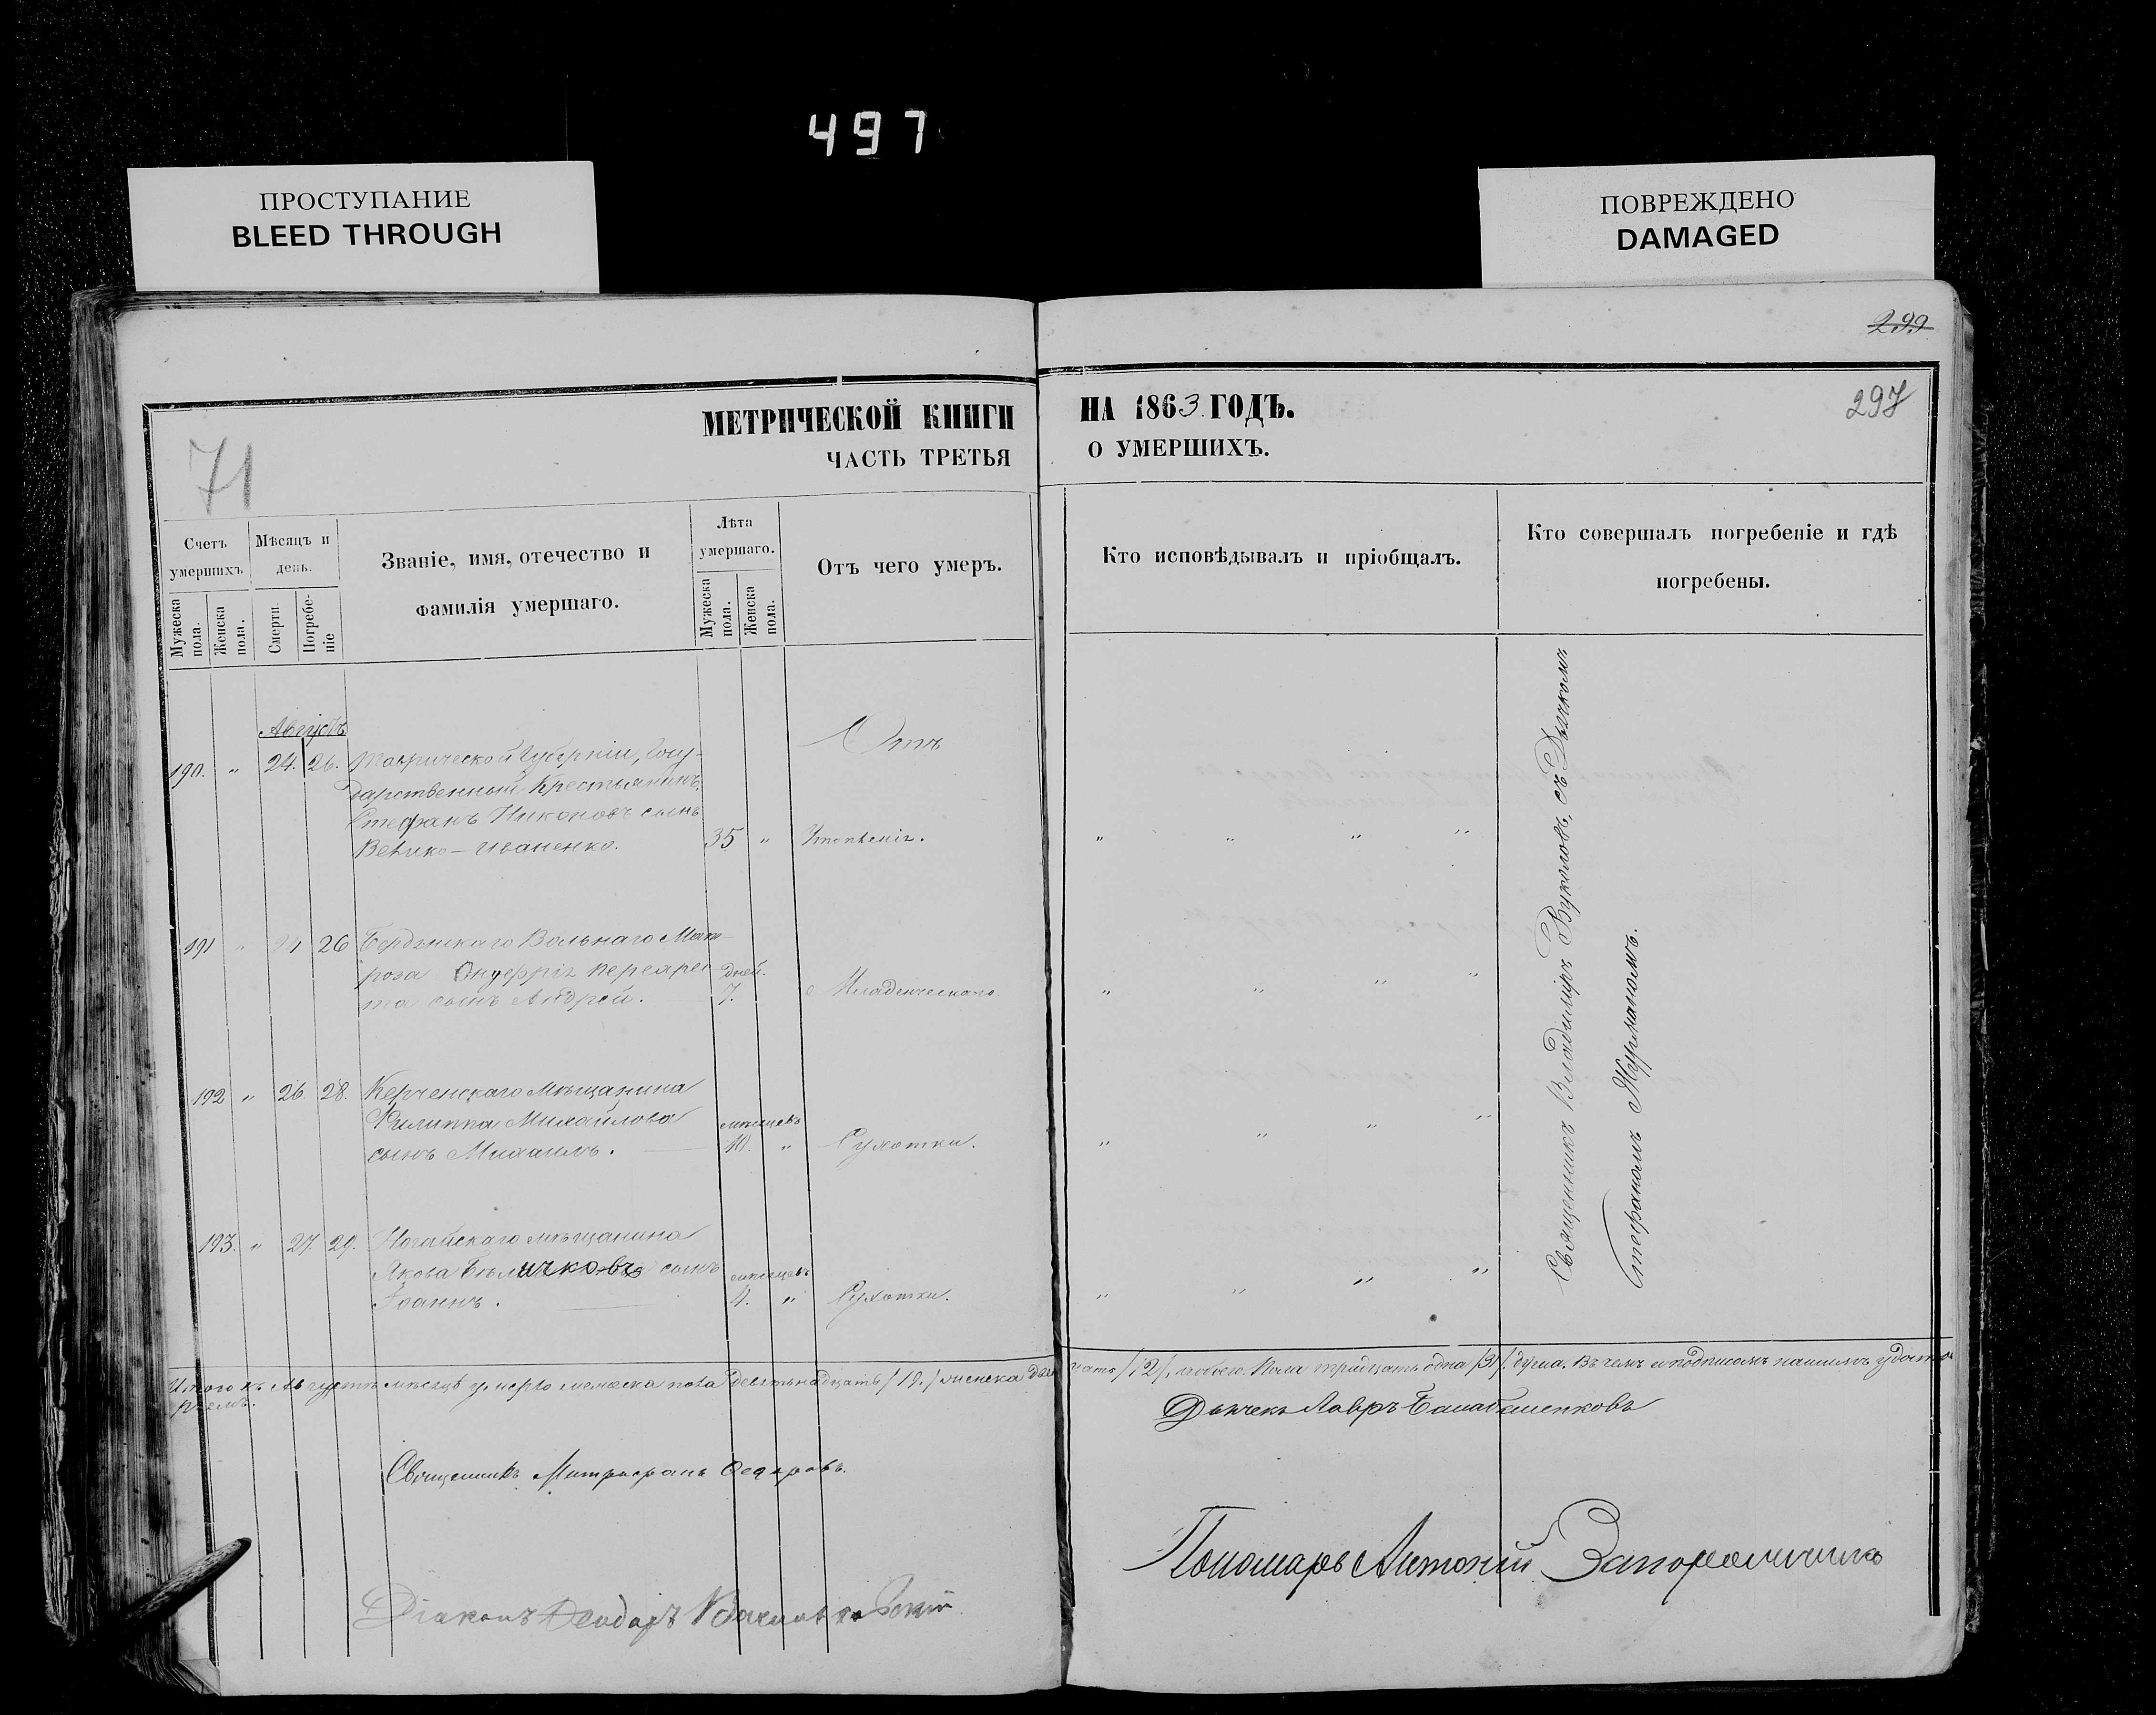 497
ПРОСТУПАНИЕ
BLEED THROUGH
ПОВРЕЖДЕНО
DAMAGED
299
297
71
МЕТРИЧЕСКОЙ КНИГИ НА 1863 ГОДЪ.
ЧАСТЬ ТРЕТЬЯ О УМЕРШИХЪ.
Счетъ умершихъ
Мужеска пола.
Женска пола.
Мѣсяцъ и день.
Смерти
Погребе-
ніе
Званіе, имя, отечество и
фамилія умершаго.
Лѣта
умершаго.
Мужеска пола.
Женска пола.
Отъ чего умеръ.
Кто исповѣдывалъ и пріобщалъ.
Кто совершалъ погребеніе и гдѣ
погребены.
Августъ
Отъ
190. " 24. 26. Таврической Губерніи, Госу-
дарственный Крестьянинъ,
Стефанъ Никоновъ сынъ
Велико-Иваненко. 35 " Утопленія. " " " "
191 " 24 26 Бердянскаго Вольнаго Мат-
роза Онуфрія дней.
та сынъ Андрей. 7. Младенческаго " " " "
192 " 26. 28. Керченскаго Мѣщанина
Филиппа Михайлова мѣсяцевъ
сынъ Михаилъ. 10. " Сухотки. " " " "
193. " 27. 29. Ногайскаго мѣщанина
Якова сынъ мѣсяцевъ
Іоаннъ. 4. " Сухотки. " " " "
Священникъ Владиміръ Вуколовъ, съ Дьячкомъ
Стефаномъ
Итого въ Августѣ мѣсяцѣ умерло мужеска пола девятнадцать /19./ женска двенадцать /12/, обоего Пола тридцать одна /31/. душа. Въ чемъ и подписомъ нашимъ удосто-
ряемъ.
Дьячекъ Лавръ
Священникъ Митрофанъ Федоровъ.
Пономарь Антоній
Діаконъ Феодоръ